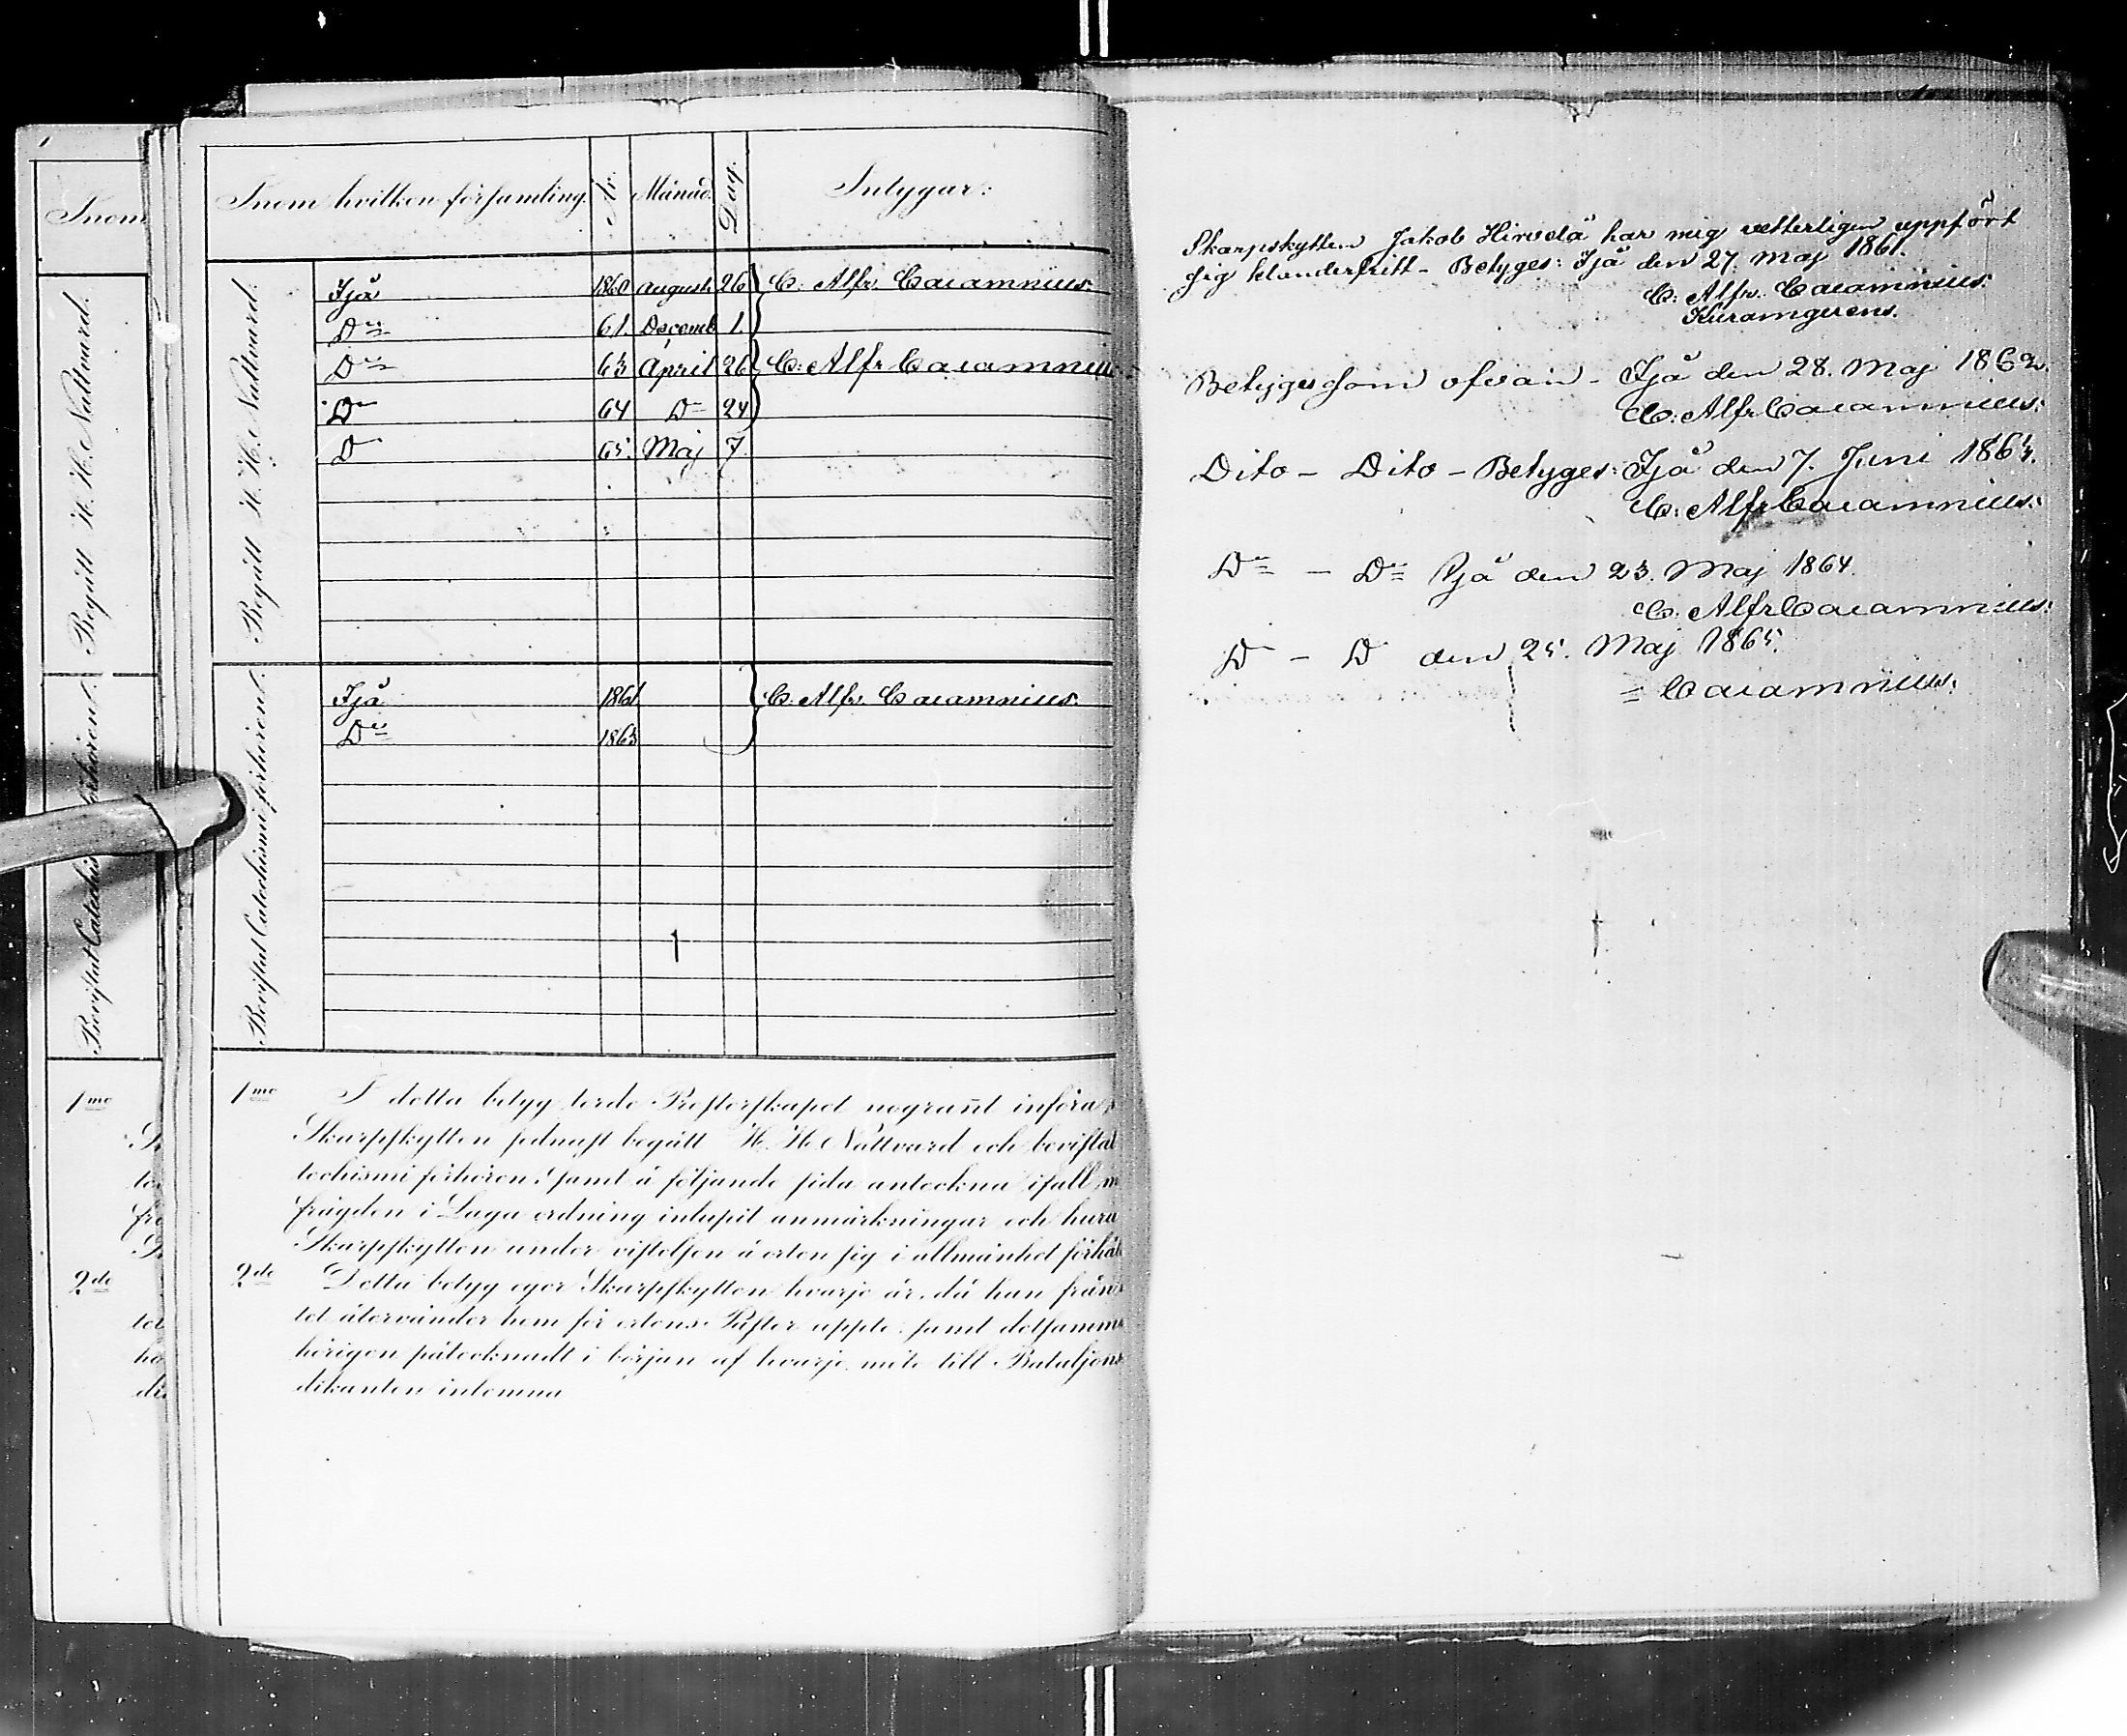 Inom
Begått H. H. Nattvard.
Bevistat Catechismi förhören:
1mo
2do
Inom hvilken församling.
År.
Månad.
Dag.
Intygar:
Begått H. H. Nattvard.
Ijå 1860 Augusti 26 C. Alfr. Cajamnius.
Do 61. Decemb 1.
Do 63 April 26 C. Alfr Cajamnius
Do 64 D 24
D 65. Maj 7.
Bevistat Catechismi förhören:
Ijå 1861 C. Alfr. Cajamnius.
Do 1863
1mo I detta betyg torde Presterskapet nogrannt införa,
Skarpskytten sednast begått H. H. Nattvard och bevistat
techismi förhören; samt å följande sida anteckna ifall, m
frägden i Laga ordning inlupit anmärkningar och huru
Skarpskytten under vistelsen å orten sig i allmänhet förhål
2do Detta betyg eger Skarpskytten hvarje år, då han från
tet återvänder hem för ortens Pastor uppte, samt detsamma
hörigen påtecknadt i början af hvarje möte till Bataljons
dikanten inlemna
Skarpskytten Jakob Hirvelä har mig vetterligen uppfört
sig klanderfritt - Betyges: Ijå den 27. Maj 1861.
C. Alfr. Cajamnius.
Betyges som ofvan - Ijå den 28. Maj 1862.
C. Alfr Cajamnius.
Dito - Dito - Betyges: Ijå den 7. Juni 1863.
C. Alfr Cajamnius.
Do - Do Ijå den 23. Maj 1864.
C. Alfr Cajamnius.
D - D den 25. Maj 1865.
Cajamnius.